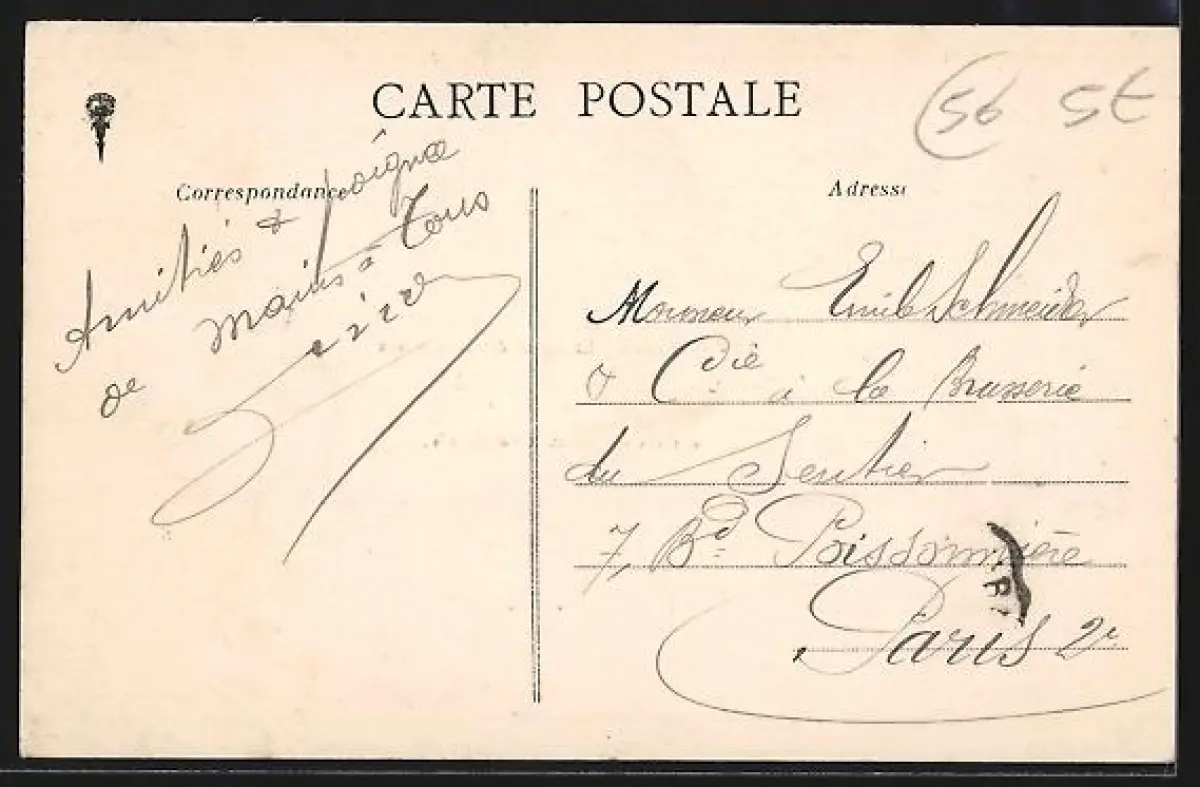 CARTE POSTALE
56 5t
Correspondance
Adresse
Amitiés & poignée
de mains à tous
Monsieur Emile Schneider
& Cie à la Brasserie
du Sentier
7, Bd Poissonnière
Paris 2e